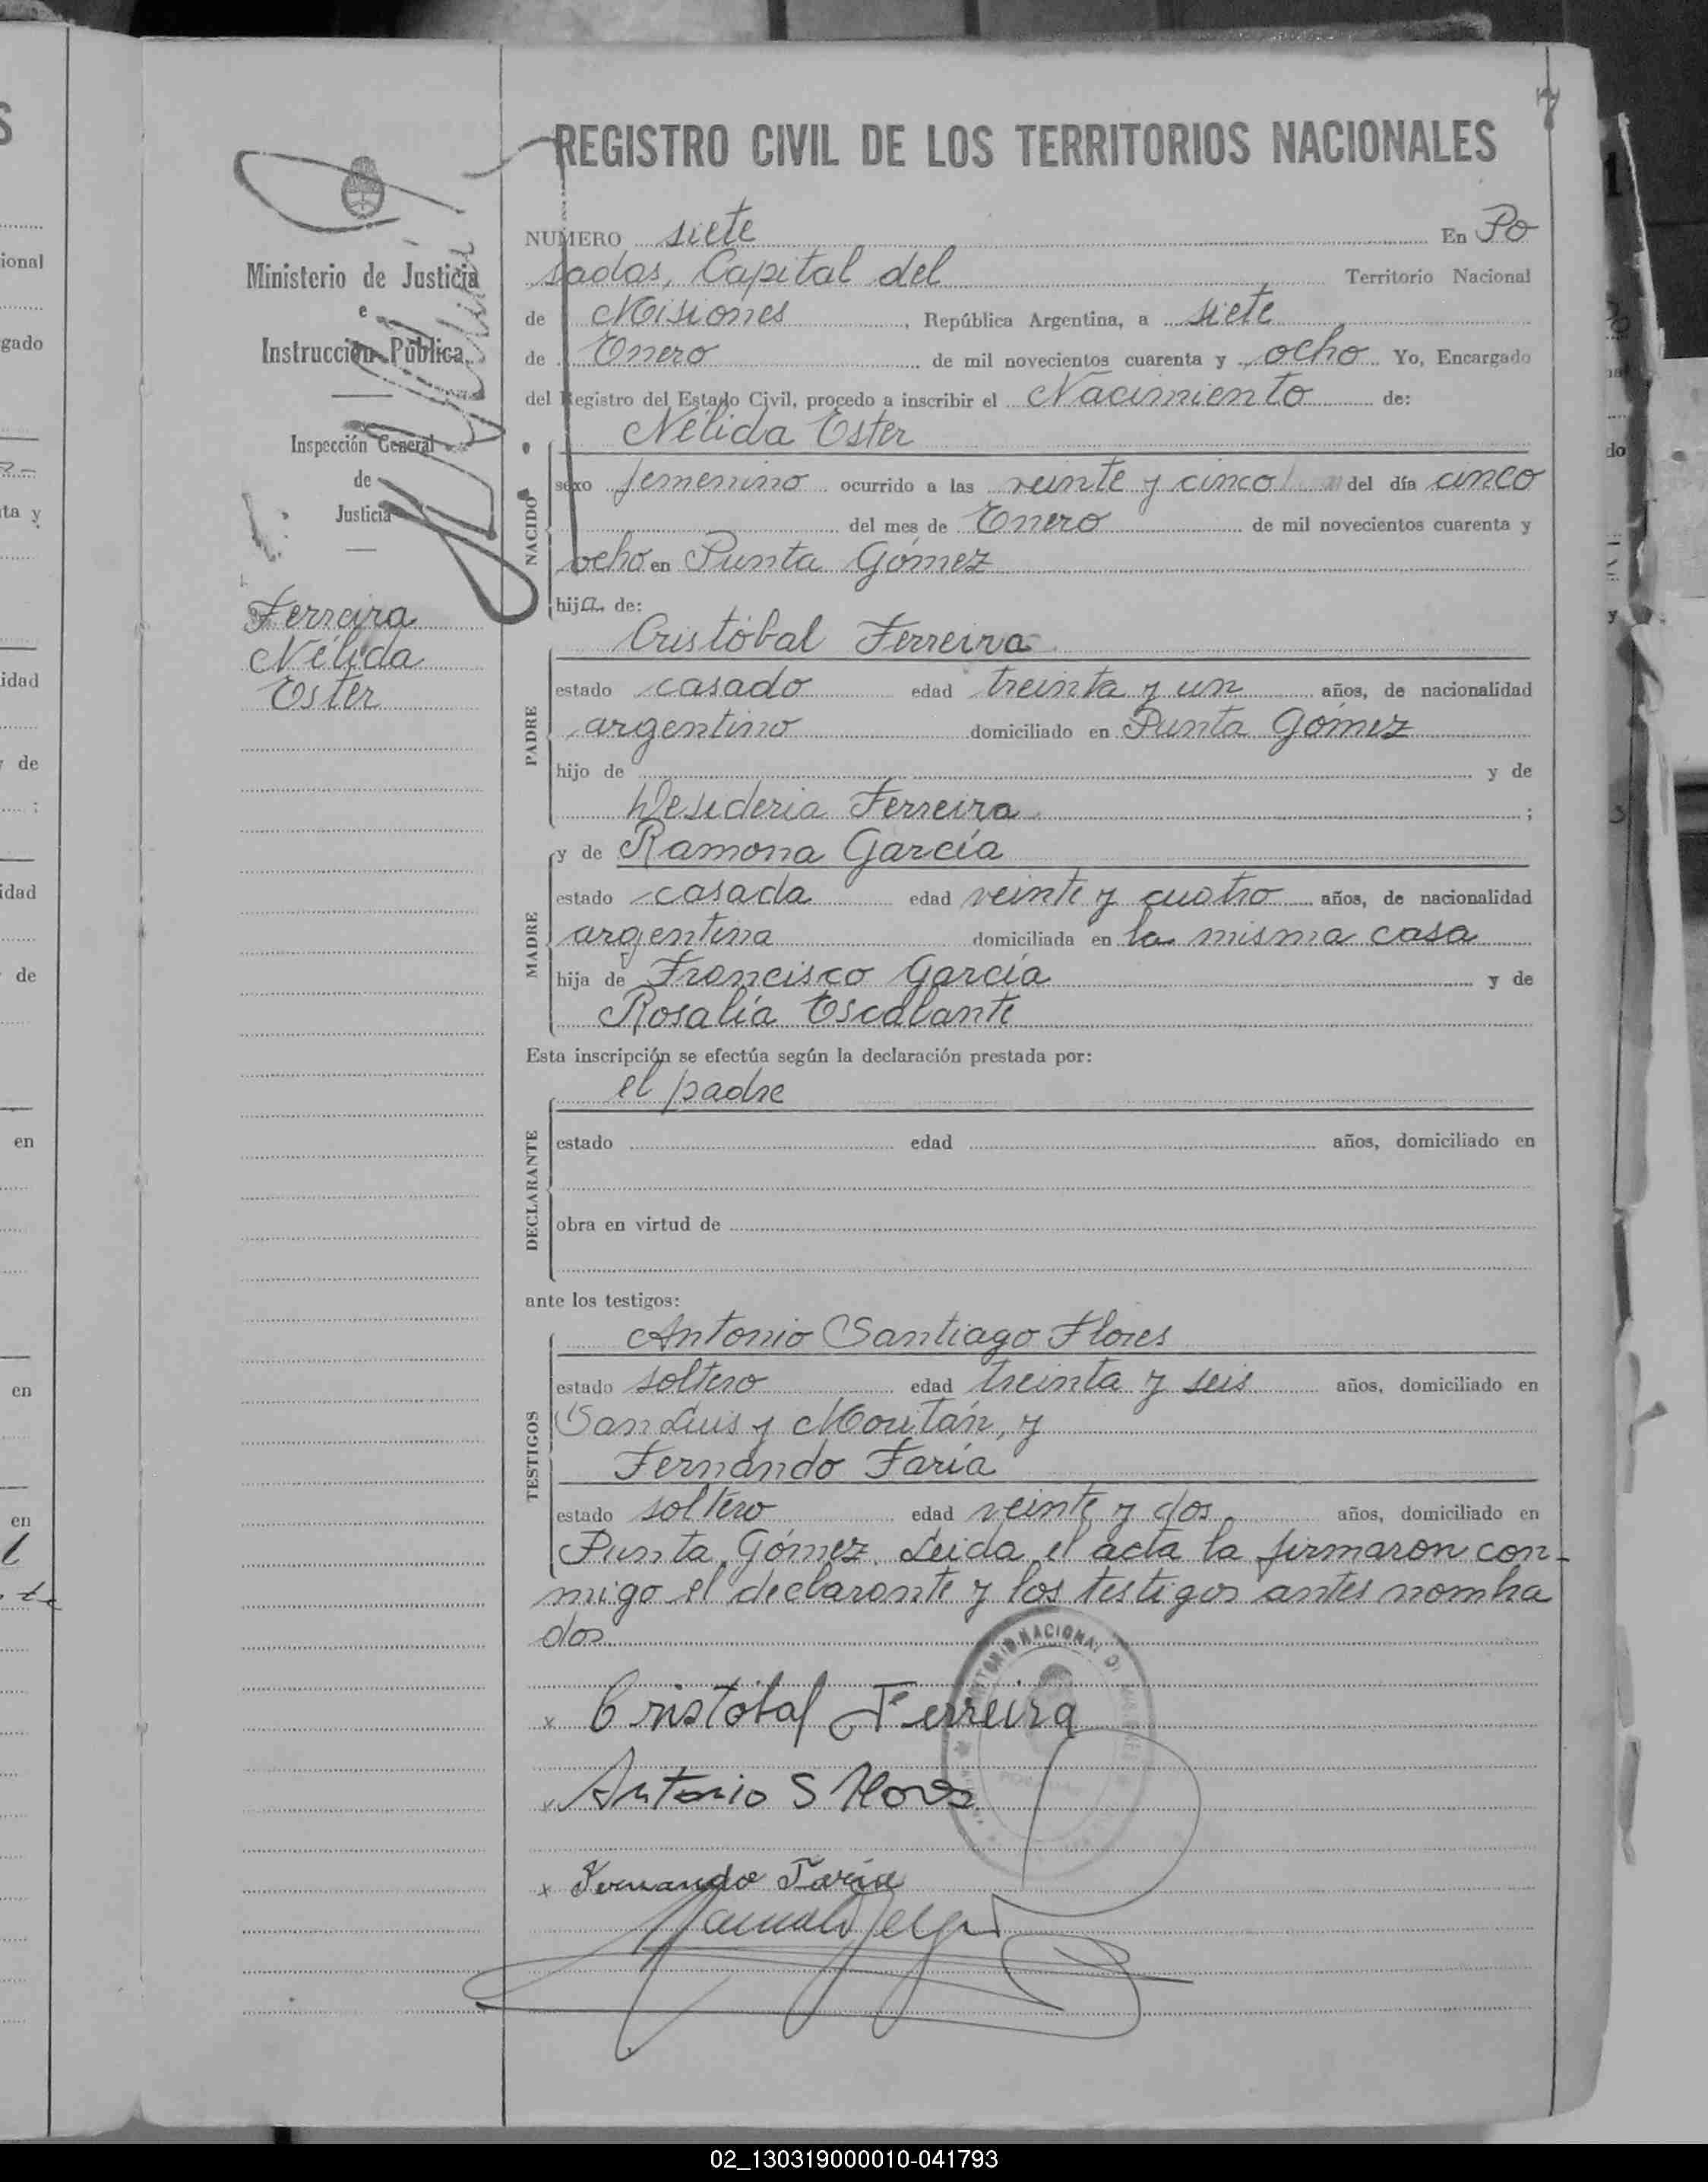 7
REGISTRO CIVIL DE LOS TERRITORIOS NACIONALES
Ministerio de Justicia
e
Instrucción Pública
Inspección General
de
Justicia
Ferreira
Nélida
Ester
NUMERO siete En Po
sadas, Capital del Territorio Nacional
de Misiones, República Argentina, a siete
de Enero de mil novecientos cuarenta y ocho Yo, Encargado
del Registro del Estado Civil, procedo a inscribir el Nacimiento de:
Nélida Ester
NACIDO
sexo femenino ocurrido a las veinte y cinco del día cinco
del mes de Enero de mil novecientos cuarenta y
ocho en Punta Gómez
hija de:
Cristóbal Ferreira
PADRE
estado casado edad treinta y un años, de nacionalidad
argentino domiciliado en Punta Gómez
hijo de y de
Desideria Ferreira ;
y de Ramona García
MADRE
estado casada edad veinte y cuatro años, de nacionalidad
argentina domiciliada en la misma casa
hija de Francisco García y de
Rosalía Escalante
Esta inscripción se efectúa según la declaración prestada por:
el padre
DECLARANTE
estado edad años, domiciliado en
obra en virtud de
ante los testigos:
Antonio Santiago Flores
TESTIGOS
estado soltero edad treinta y seis años, domiciliado en
San Luis y Moritán, y
Fernando Faría
estado soltero edad veinte y dos años, domiciliado en
Punta Gómez. Leida el acta la firmaron con-
migo el declarante y los testigos antes nombra
dos
x Cristóbal Ferreira
x Antonio S Flores
x Fernando Faria
02_130319000010-041793